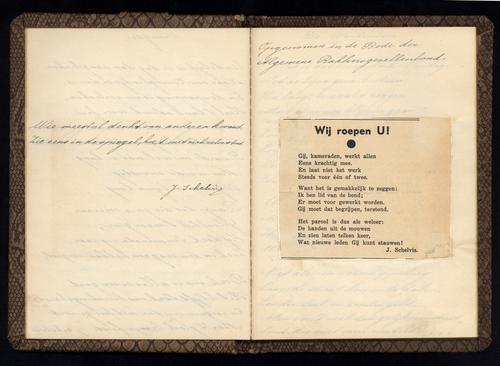 Wie meestal denkt van anderen kwaad,
Zie eens in de spiegel, hoe 't met zich
J. Schelvis
Opgenomen in de Bode der
Algemene Bakkersgezellenbond.
Wij roepen U!
Gij, kameraden, werkt allen
Eens krachtig mee.
En laat niet het werk
Steeds voor één of twee.
Want het is gemakkelijk te zeggen:
Ik ben lid van de bond;
Er moet voor gewerkt worden.
Gij moet dat begrijpen, terstond.
Het parool is dus als weleer:
De handen uit de mouwen
En zien laten telken keer,
Wat nieuwe leden Gij kunt stauwen!
J. Schelvis.